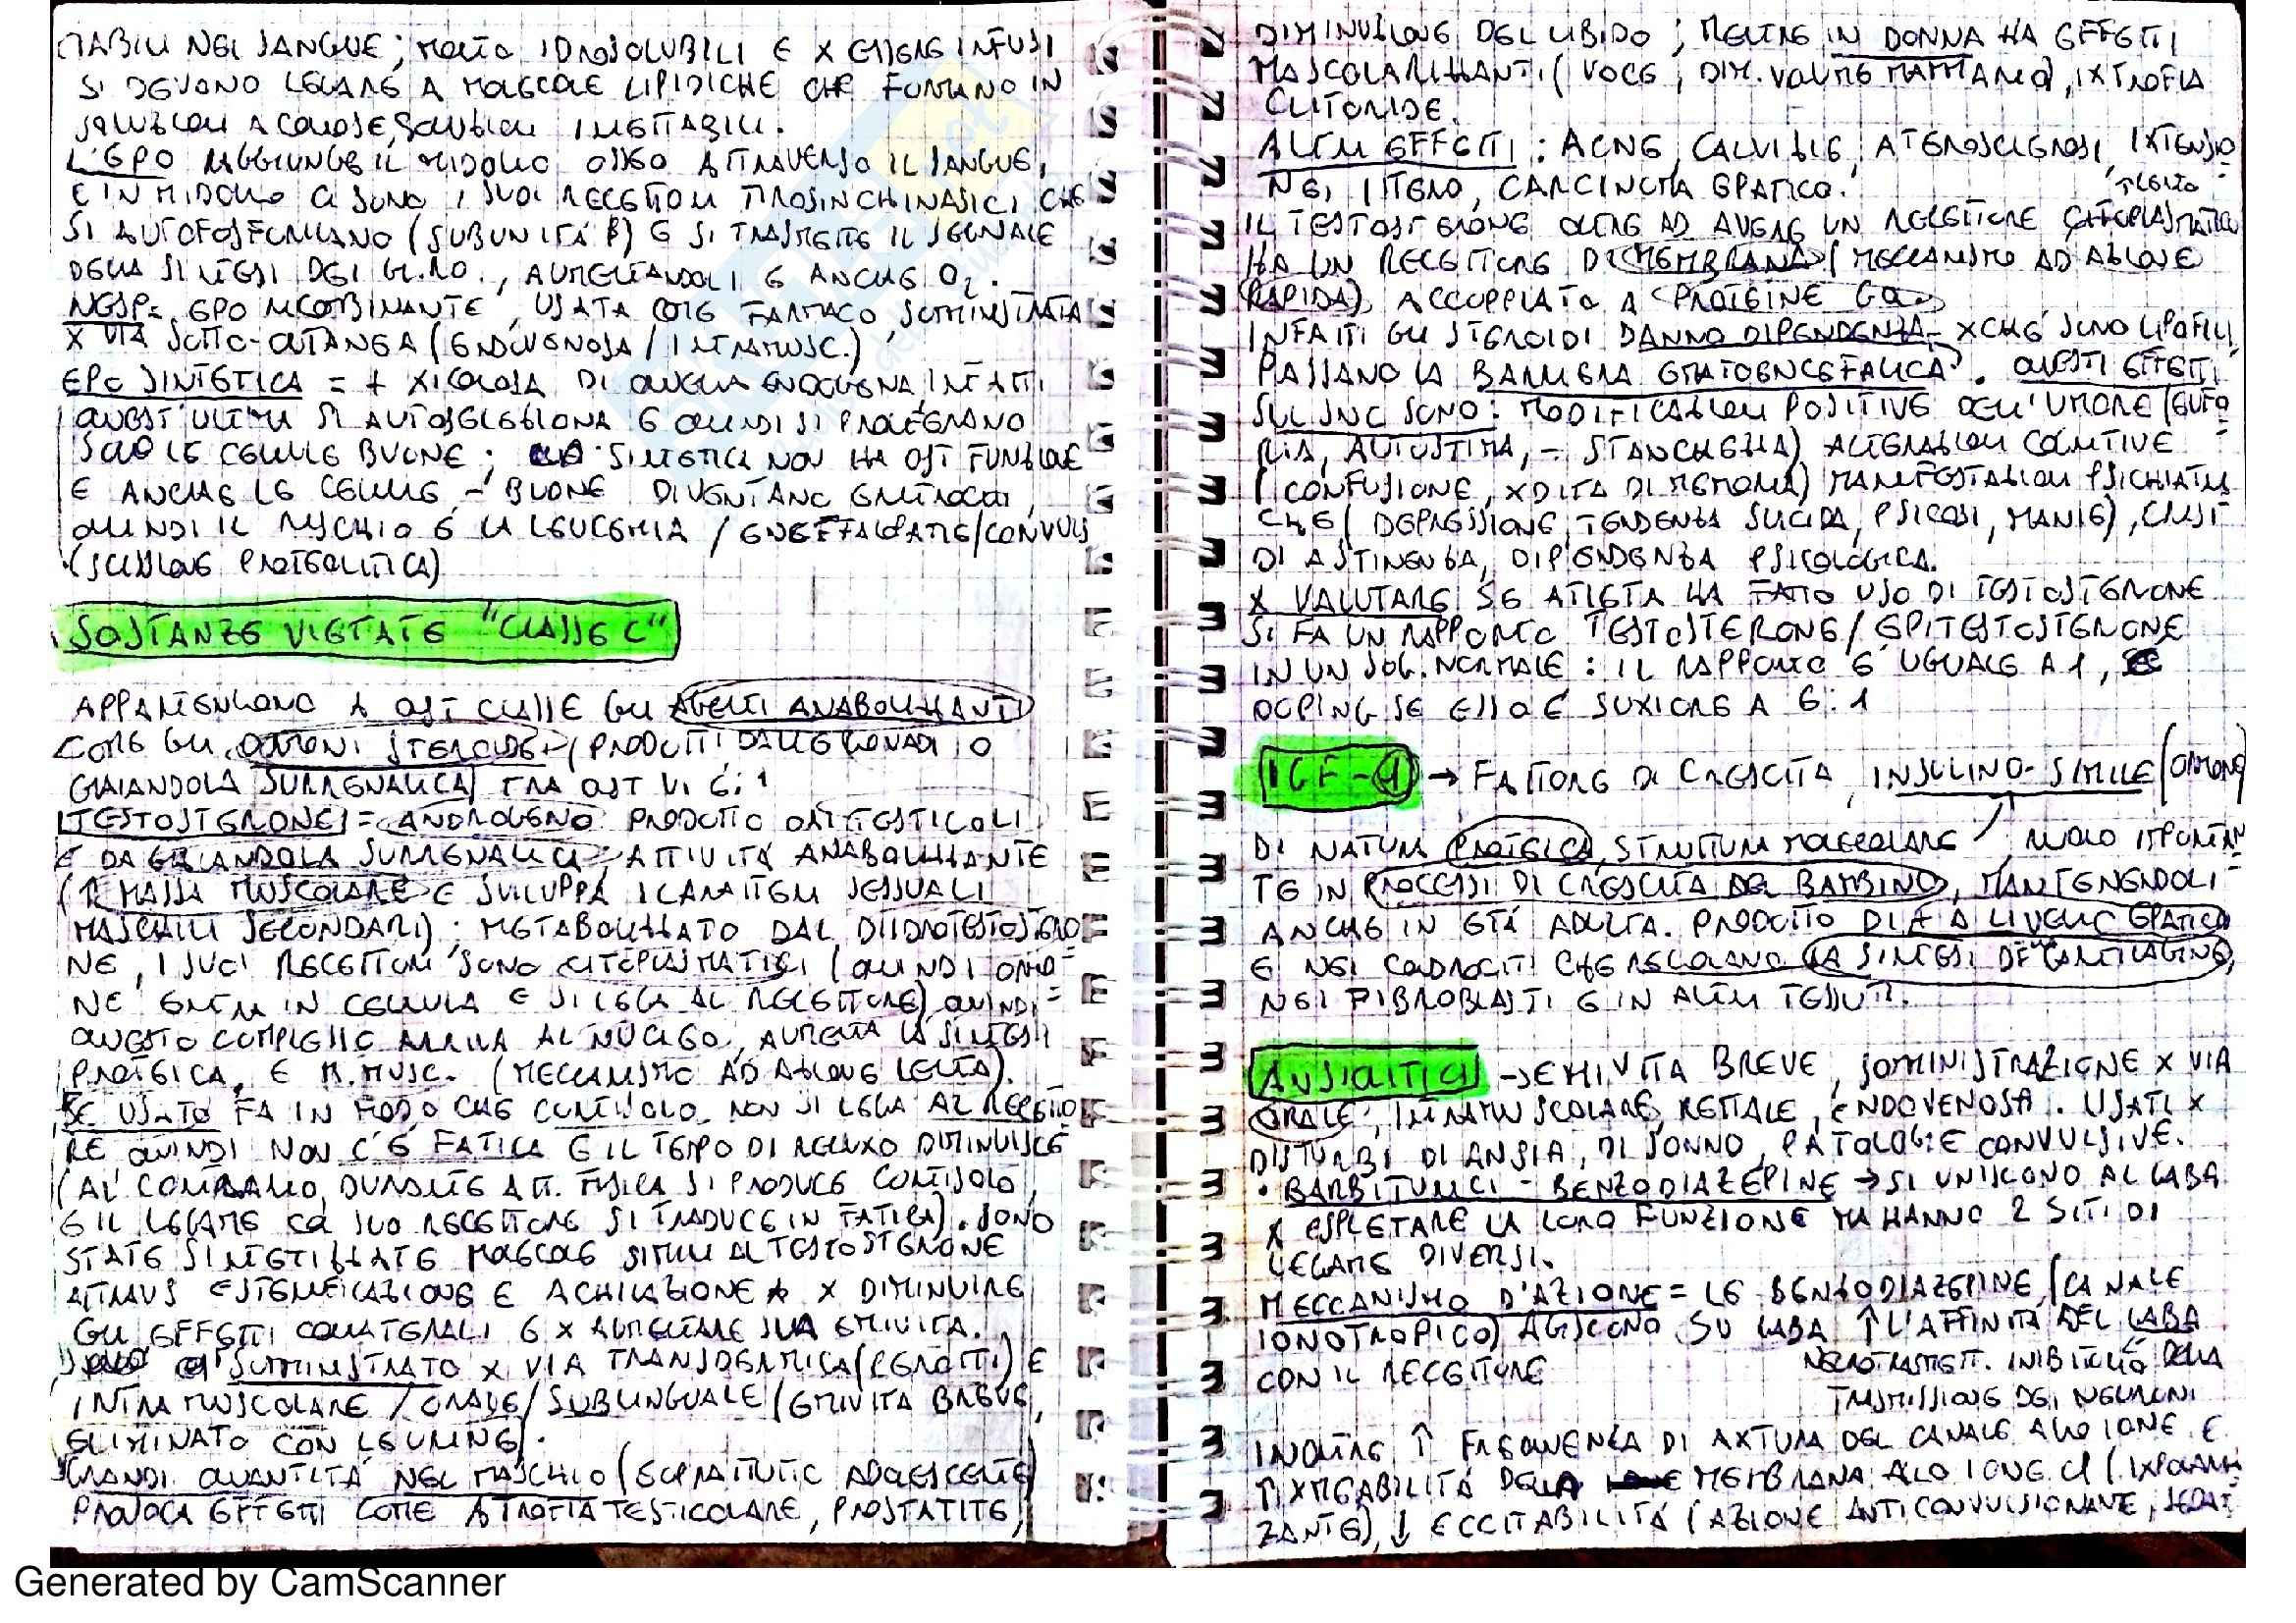 STABILI NEL SANGUE; MOLTO IDROSOLUBILI E X ESSERE INFUSI
SI DEVONO LEGARE A MOLECOLE LIPIDICHE CHE FUNGANO IN
SOLUZIONI ACQUOSE, SOLUZIONI INIETTABILI.
L'EPO RAGGIUNGE IL MIDOLLO OSSEO ATTRAVERSO IL SANGUE,
E IN MIDOLLO CI SONO I SUOI RECETTORI TIROSINCHINASICI CHE
SI AUTOFOSFORILANO (SUBUNITÁ β) E SI TRASMETTE IL SEGNALE
DELLA SINTESI DEI GL.RO., AUMENTANDOLI E ANCHE O2.
NESP= EPO RICOMBINANTE, USATA COME FARMACO, SOMMINISTRATA
X VIA SOTTO-CUTANEA (ENDOVENOSA / INTRAMUSC.)
EPO SINTETICA = + XICOLOSA DI QUELLA ENDOGENA, INFATTI
QUEST'ULTIMA SI AUTOSELEZIONA E QUINDI SI PROLIFERANO
SOLO LE CELLULE BUONE; SINTETICA NON HA QST FUNZIONE
E ANCHE LE CELLULE - BUONE DIVENTANO ERITROCITI,
QUINDI IL RISCHIO É LA LEUCEMIA / ENCEFFALOPATIE/CONVULS
(SCISSIONE PROTEOLITICA)
SOSTANZE VIETATE "CLASSE C"
APPARTENGONO A QST CLASSE GLI AGENTI ANABOLIZZANTI
COME GLI ORMONI STEROIDEI (PRODOTTI DALLE GONADI O
GHIANDOLA SURRENALICA) TRA QST VI É: 1
TESTOSTERONE = ANDROGENO PRODOTTO DAI TESTICOLI
E DA GHIANDOLA SURRENALICA; ATTIVITÁ ANABOLIZZANTE
(↑ MASSA MUSCOLARE E SVILUPPA I CARATTERI SESSUALI
MASCHILI SECONDARI); METABOLIZZATO DAL DIIDROTESTOSTERO
NE, I SUOI RECETTORI SONO CITOPLASMATICI (QUINDI ORMO-
NE ENTRA IN CELLULA E SI LEGA AL RECETTORE) QUINDI
QUESTO COMPLESSO ARRIVA AL NUCLEO, AUMENTA LA SINTESI
PROTEICA, E M.MUSC. (MECCANISMO AD AZIONE LENTA).
SE USATO FA IN MODO CHE CORTISOLO NON SI LEGA AL RECETTO
RE QUINDI NON C'É FATICA E IL TEMPO DI RECUXO DIMINUISCE
(AL CONTRARIO, DURANTE ATT. FISICA SI PRODUCE CORTISOLO,
E IL LEGAME COL SUO RECETTORE SI TRADUCE IN FATICA). SONO
STATE SINTETIZZATE MOLECOLE SIMILI AL TESTOSTERONE
ATTRAVS ESTERIFICAZIONE E ACHILAZIONE X DIMINUIRE
GLI EFFETTI COLLATERALI E X AUMENTARE SUA EMIVITA.
SOMMINISTRATO X VIA TRANSDERMICA (CEROTTI) E
INTRAMUSCOLARE / ORALE / SUBLINGUALE (EMIVITA BREVE,
ELIMINATO CON LE URINE).
GRANDI QUANTITÁ NEL MASCHIO (SOPRATTUTTO ADOLESCENTE)
PROVOCA EFFETTI COME ATROFIA TESTICOLARE, PROSTATITE,
DIMINUZIONE DEL LIBIDO; MENTRE IN DONNA HA EFFETTI
MASCOLARIZZANTI (VOCE, DIM. VOLUME MAMMARIO), IXTROFIA
CLITORIDE.
ALTRI EFFETTI: ACNE, CALVIZIE, ATEROSCLEROSI, IXTENSIO-
NE, ITTERO, CARCINOMA EPATICO.
IL TESTOSTERONE OLTRE AD AVERE UN RECETTORE CITOPLASMATICO
HA UN RECETTORE DI MEMBRANA (MECCANISMO AD AZIONE
RAPIDA), ACCOPPIATO A PROTEINE Gq.
INFATTI GLI STEROIDI DANNO DIPENDENZA XCHÉ SONO LIPOFILI,
PASSANO LA BARRIERA EMATOENCEFALICA. QUESTI EFFETTI
SUL SNC SONO: MODIFICAZIONI POSITIVE DELL'UMORE (EUFO-
RIA, AUTOSTIMA, - STANCHEZZA) ALTERAZIONI COGNITIVE
(CONFUSIONE, XDITA DI MEMORIA) MANIFESTAZIONI PSICHIATRI
CHE (DEPRESSIONE, TENDENZA SUICIDA, PSICOSI, MANIE), CRISI
DI ASTINENZA, DIPENDENZA PSICOLOGICA.
X VALUTARE SE ATLETA HA FATTO USO DI TESTOSTERONE
SI FA UN RAPPORTO TESTOSTERONE / EPITESTOSTERONE
IN UN SOG. NORMALE: IL RAPPORTO É UGUALE A 1,
DOPING SE ESSO É SUXIORE A 6:1
IGF-1 → FATTORE DI CRESCITA INSULINO-SIMILE (ORMONE)
DI NATURA PROTEICA, STRUTTURA MOLECOLARE, RUOLO IMPORTAN
TE IN PROCESSI DI CRESCITA DEL BAMBINO, MANTENENDOLI
ANCHE IN ETÁ ADULTA. PRODOTTO DI + A LIVELLO EPATICO
E NEI CONDROCITI CHE REGOLANO LA SINTESI DE CARTILAGINE,
NEI FIBROBLASTI E IN ALTRI TESSUTI.
ANSIOLITICI → EMIVITA BREVE, SOMMINISTRAZIONE X VIA
ORALE, INTRAMUSCOLARE, RETTALE, ENDOVENOSA. USATI X
DISTURBI DI ANSIA, DI SONNO, PATOLOGIE CONVULSIVE.
• BARBITURICI - BENZODIAZEPINE → SI UNISCONO AL GABA
X ESPLETARE LA LORO FUNZIONE MA HANNO 2 SITI DI
LEGAME DIVERSI.
MECCANISMO D'AZIONE = LE BENZODIAZEPINE (CANALE
IONOTROPICO) AGISCONO SU GABA ↑ L'AFFINITÁ DEL GABA
CON IL RECETTORE
NEUROTRASMETT. INIBITORIO DELLA
TRASMISSIONE DEI NEURONI
INOLTRE ↑ FREQUENZA DI AXTURA DEL CANALE ALLO IONE E
↑ XMEABILITÁ DELLA MEMBRANA ALLO IONE Cl (IXPOLARIZ
ZANTE), ↓ ECCITABILITÁ (AZIONE ANTICONVULSIONANTE, SEDAT
Generated by CamScanner